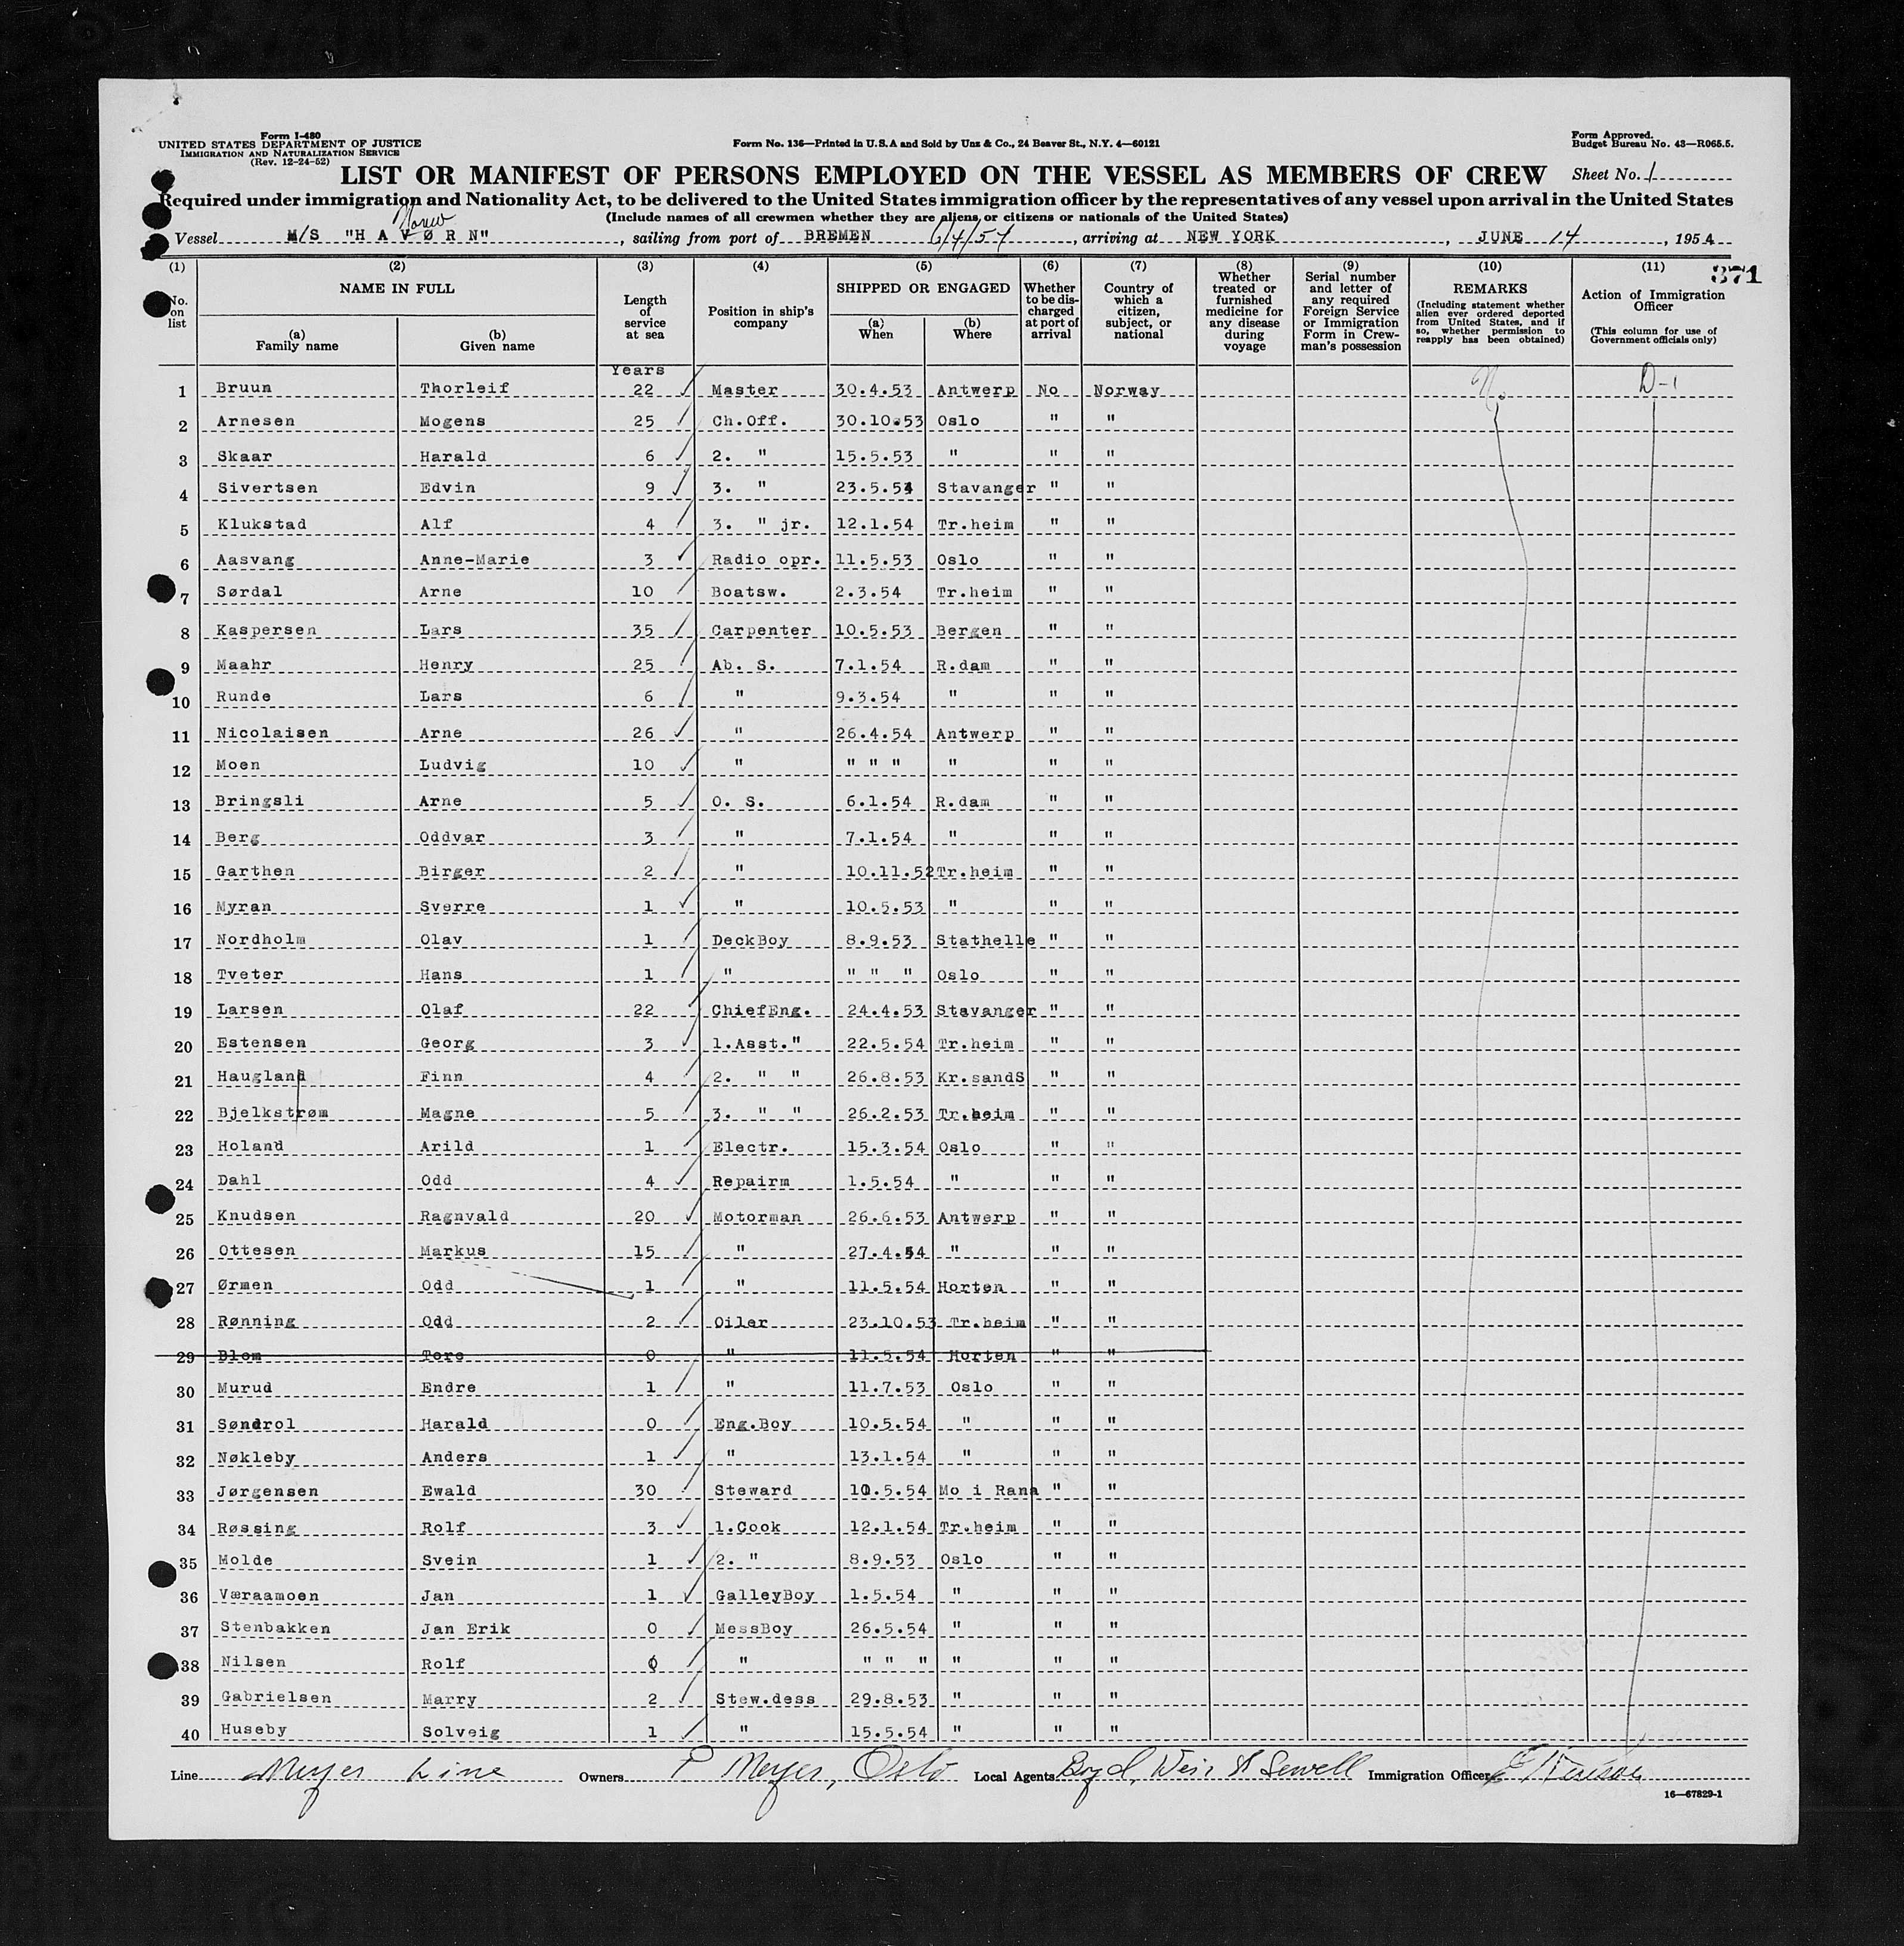 Form I-480
UNITED STATES DEPARTMENT OF JUSTICE
IMMIGRATION AND NATURALIZATION SERVICE
(Rev. 12-24-52)
Form No. 136—Printed in U.S.A and Sold by Unz & Co., 24 Beaver St., N.Y. 4—60121
Form Approved.
Budget Bureau No. 43—R065.5.
LIST OR MANIFEST OF PERSONS EMPLOYED ON THE VESSEL AS MEMBERS OF CREW
Sheet No. 1
Required under immigration and Nationality Act, to be delivered to the United States immigration officer by the representatives of any vessel upon arrival in the United States
(Include names of all crewmen whether they are aliens or citizens or nationals of the United States)
Norw
Vessel M/S "H A V Ø R N", sailing from port of BREMEN 6/4/54, arriving at NEW YORK, JUNE 14, 1954
371
(1) No. on list
(2) NAME IN FULL (a) Family name (b) Given name
(3) Length of service at sea
(4) Position in ship's company
(5) SHIPPED OR ENGAGED (a) When (b) Where
(6) Whether to be discharged at port of arrival
(7) Country of which a citizen, subject, or national
(8) Whether treated or furnished medicine for any disease during voyage
(9) Serial number and letter of any required Foreign Service or Immigration Form in Crewman's possession
(10) REMARKS (Including statement whether alien ever ordered deported from United States, and if so, whether permission to reapply has been obtained)
(11) Action of Immigration Officer (This column for use of Government officials only)
Years
1 Bruun Thorleif 22 Master 30.4.53 Antwerp No Norway No D-1
2 Arnesen Mogens 25 Ch.Off. 30.10.53 Oslo " "
3 Skaar Harald 6 2. " 15.5.53 " " "
4 Sivertsen Edvin 9 3. " 23.5.54 Stavanger " "
5 Klukstad Alf 4 3. " jr. 12.1.54 Tr.heim " "
6 Aasvang Anne-Marie 3 Radio opr. 11.5.53 Oslo " "
7 Sørdal Arne 10 Boatsw. 2.3.54 Tr.heim " "
8 Kaspersen Lars 35 Carpenter 10.5.53 Bergen " "
9 Maahr Henry 25 Ab. S. 7.1.54 R.dam " "
10 Runde Lars 6 " 9.3.54 " " "
11 Nicolaisen Arne 26 " 26.4.54 Antwerp " "
12 Moen Ludvig 10 " " " " " " "
13 Bringsli Arne 5 O. S. 6.1.54 R.dam " "
14 Berg Oddvar 3 " 7.1.54 " " "
15 Garthen Birger 2 " 10.11.52 Tr.heim " "
16 Myran Sverre 1 " 10.5.53 " " "
17 Nordholm Olav 1 DeckBoy 8.9.53 Stathelle " "
18 Tveter Hans 1 " " " " Oslo " "
19 Larsen Olaf 22 ChiefEng. 24.4.53 Stavanger " "
20 Estensen Georg 3 1.Asst." 22.5.54 Tr.heim " "
21 Haugland Finn 4 2. " " 26.8.53 Kr.sandS " "
22 Bjelkstrøm Magne 5 3. " " 26.2.53 Tr.heim " "
23 Holand Arild 1 Electr. 15.3.54 Oslo " "
24 Dahl Odd 4 Repairm 1.5.54 " " "
25 Knudsen Ragnvald 20 Motorman 26.6.53 Antwerp " "
26 Ottesen Markus 15 " 27.4.54 " " "
27 Ørmen Odd 1 " 11.5.54 Horten " "
28 Rønning Odd 2 Oiler 23.10.53 Tr.heim " "
29 Blom Tore 0 " 11.5.54 Horten " "
30 Murud Endre 1 " 11.7.53 Oslo " "
31 Søndrol Harald 0 Eng.Boy 10.5.54 " " "
32 Nøkleby Anders 1 " 13.1.54 " " "
33 Jørgensen Ewald 30 Steward 10.5.54 Mo i Rana " "
34 Røssing Rolf 3 1.Cook 12.1.54 Tr.heim " "
35 Molde Svein 1 2. " 8.9.53 Oslo " "
36 Væraamoen Jan 1 GalleyBoy 1.5.54 " " "
37 Stenbakken Jan Erik 0 MessBoy 26.5.54 " " "
38 Nilsen Rolf 0 " " " " " " "
39 Gabrielsen Marry 2 Stew.dess 29.8.53 " " "
40 Huseby Solveig 1 " 15.5.54 " " "
Line Meyer Line Owners P Meyer, Oslo Local Agents Boyd, Weir & Sewell Immigration Officer
16—67829-1